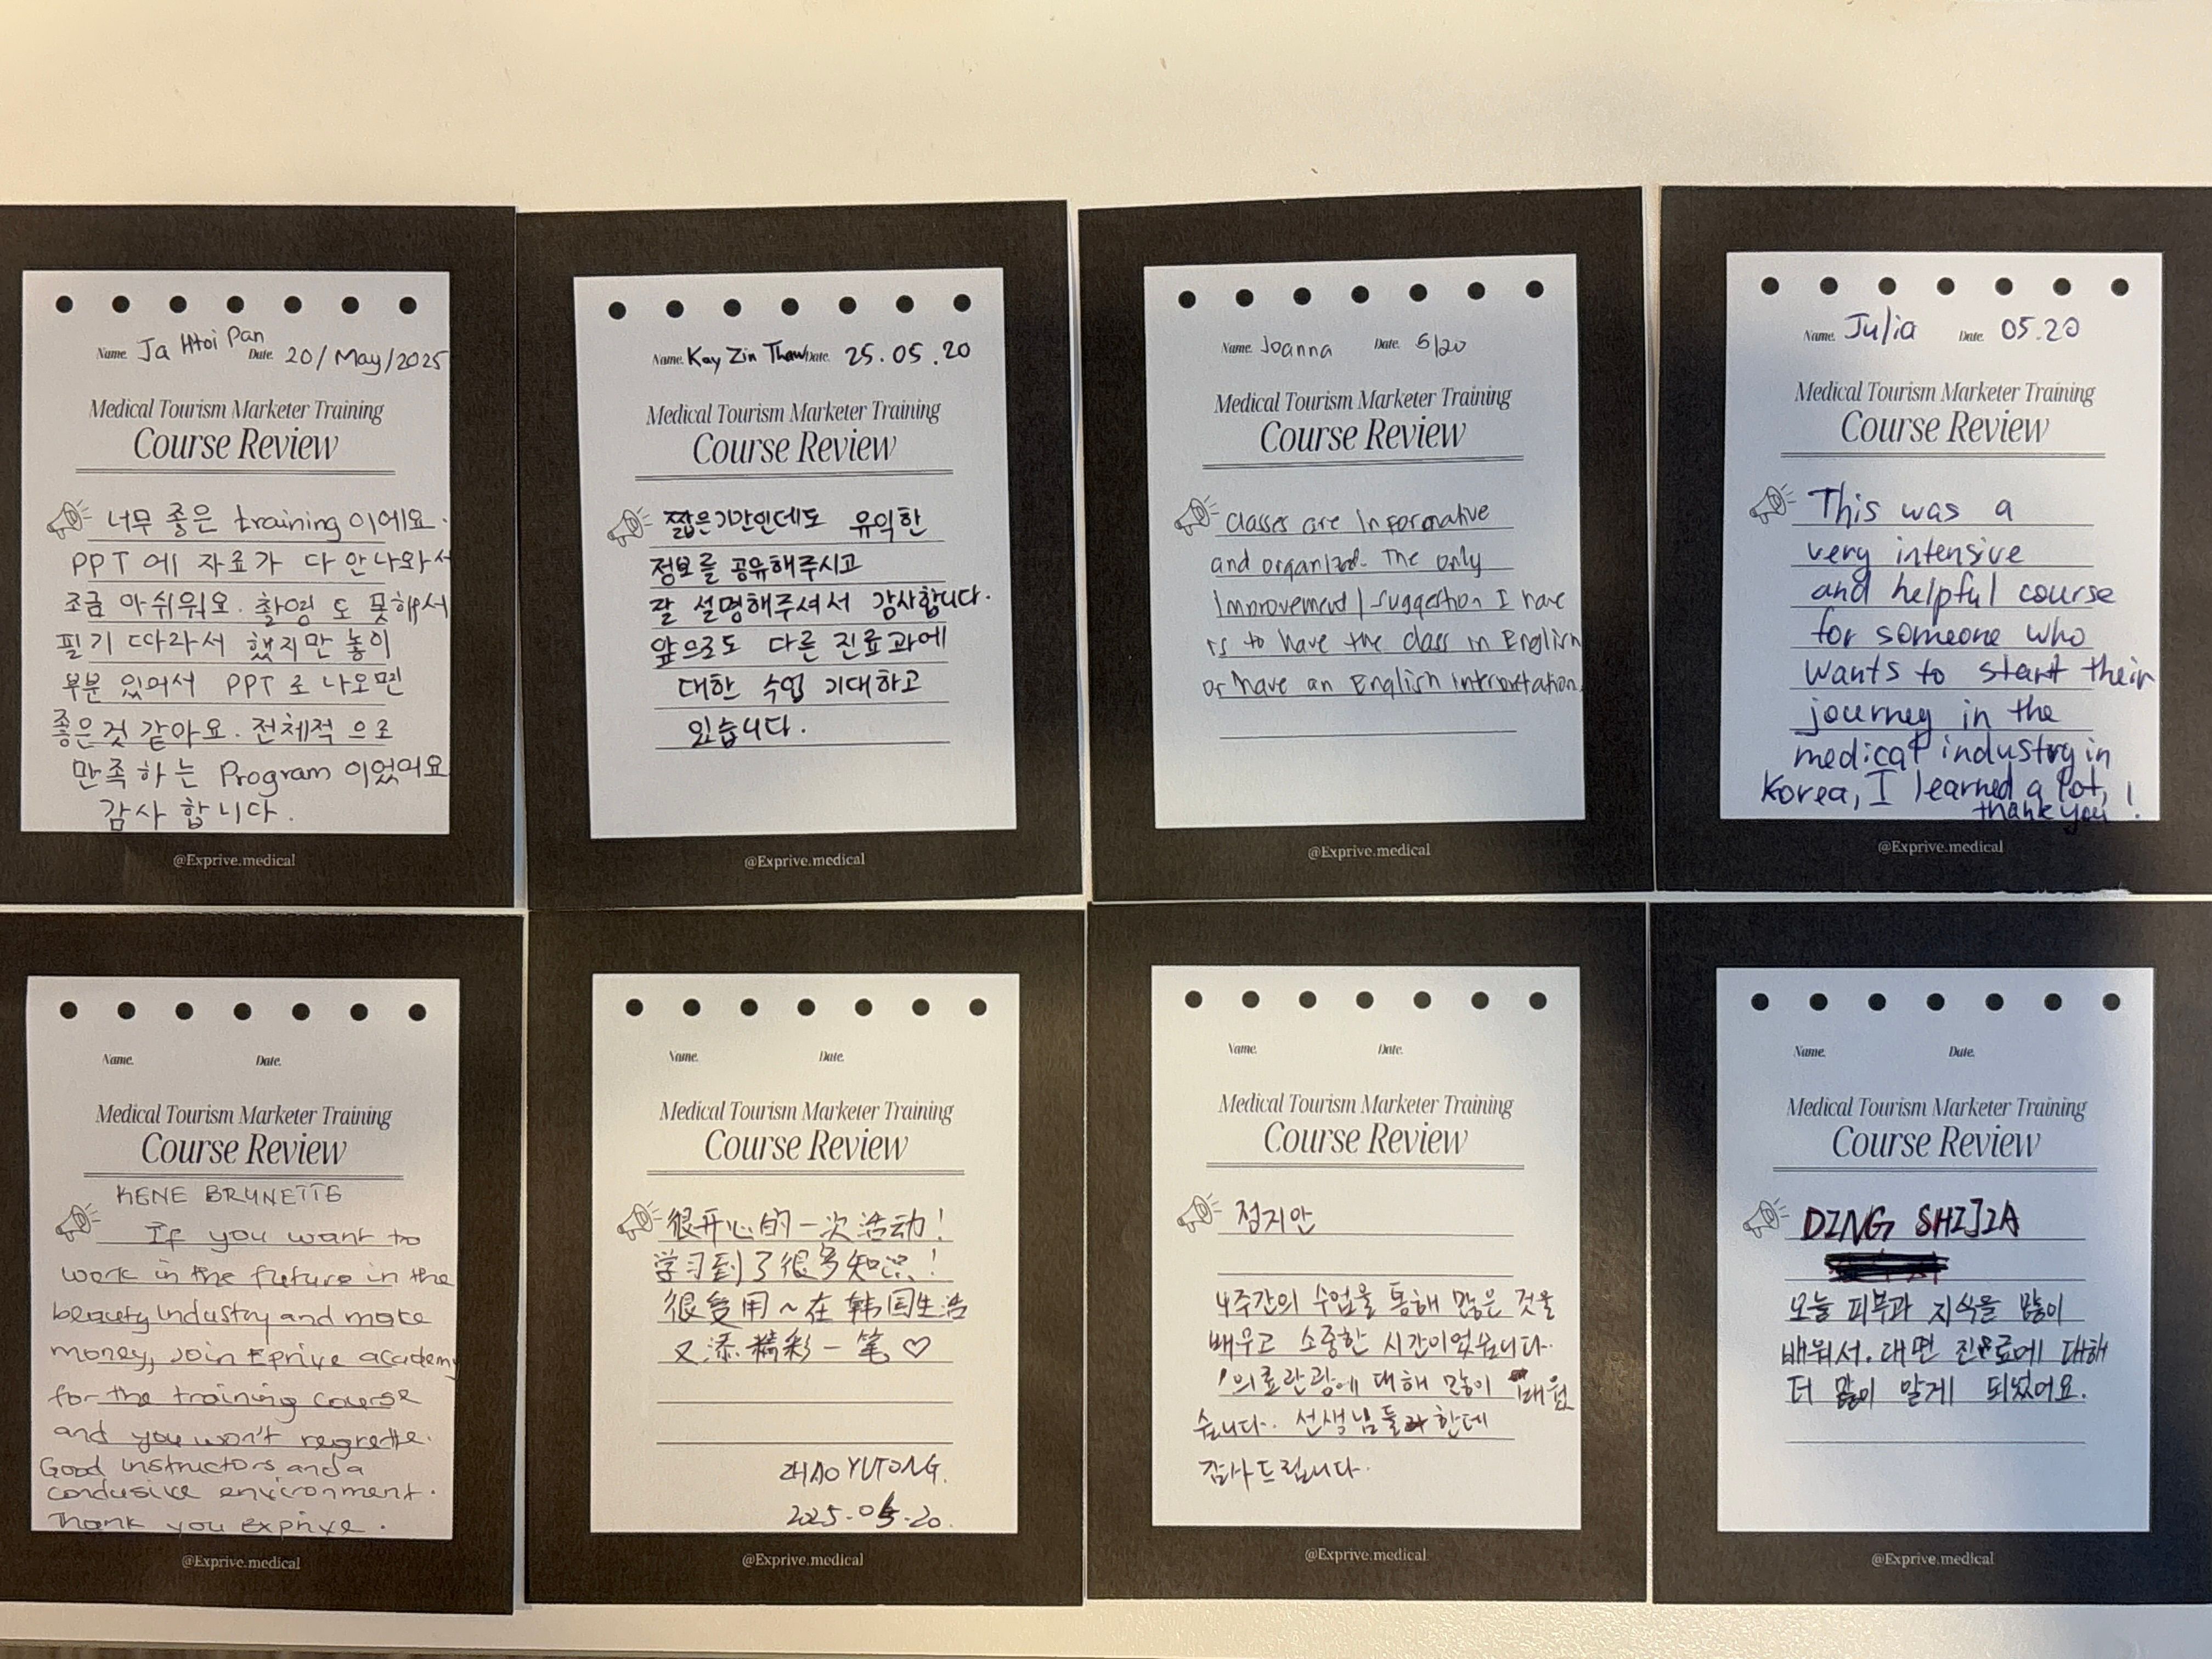 Name. Ja Htoi Pan Date. 20/May/2025
Medical Tourism Marketer Training
Course Review
너무 좋은 training이에요.
PPT에 자료가 다 안나와서
조금 아쉬워요. 촬영도 못해서
필기 따라서 했지만 놓이
부분 있어서 PPT로 나오면
좋은것 같아요. 전체적으로
만족하는 Program이었어요
감사합니다.
@Exprive.medical
Name. Kay Zin Thaw Date. 25.05.20
Medical Tourism Marketer Training
Course Review
짧은기간인데도 유익한
정보를 공유해주시고
잘 설명해주셔서 감사합니다.
앞으로도 다른 진료과에
대한 수업 기대하고
있습니다.
@Exprive.medical
Name. Joanna Date. 5/20
Medical Tourism Marketer Training
Course Review
Classes are informative
and organized. The only
Improvement/suggestion I have
is to have the class in English
or have an English interpretation.
@Exprive.medical
Name. Julia Date. 05.20
Medical Tourism Marketer Training
Course Review
This was a
very intensive
and helpful course
for someone who
wants to start their
journey in the
medical industry in
Korea, I learned a lot,
thank you!
@Exprive.medical
Name. Date.
Medical Tourism Marketer Training
Course Review
KENE BRUNETTE
If you want to
work in the future in the
beauty industry and make
money, Join Eprive academy
for the training course
and you won't regrette.
Good instructors and a
condusive environment.
Thank you exprive.
@Exprive.medical
Name. Date.
Medical Tourism Marketer Training
Course Review
很开心的一次活动!
学习到了很多知识!
很受用~在韩国生活
又添精彩一笔♡
ZHAO YUTONG.
2025.05.20.
@Exprive.medical
Name. Date.
Medical Tourism Marketer Training
Course Review
정지안
4주간의 수업을 통해 많은 것을
배우고 소중한 시간이었습니다.
의료관광에 대해 많이 배웠
습니다. 선생님들한테
감사드립니다.
@Exprive.medical
Name. Date.
Medical Tourism Marketer Training
Course Review
DING SHIJIA
오늘 피부과 지식을 많이
배워서. 대면 진료에 대해
더 많이 알게 되었어요.
@Exprive.medical